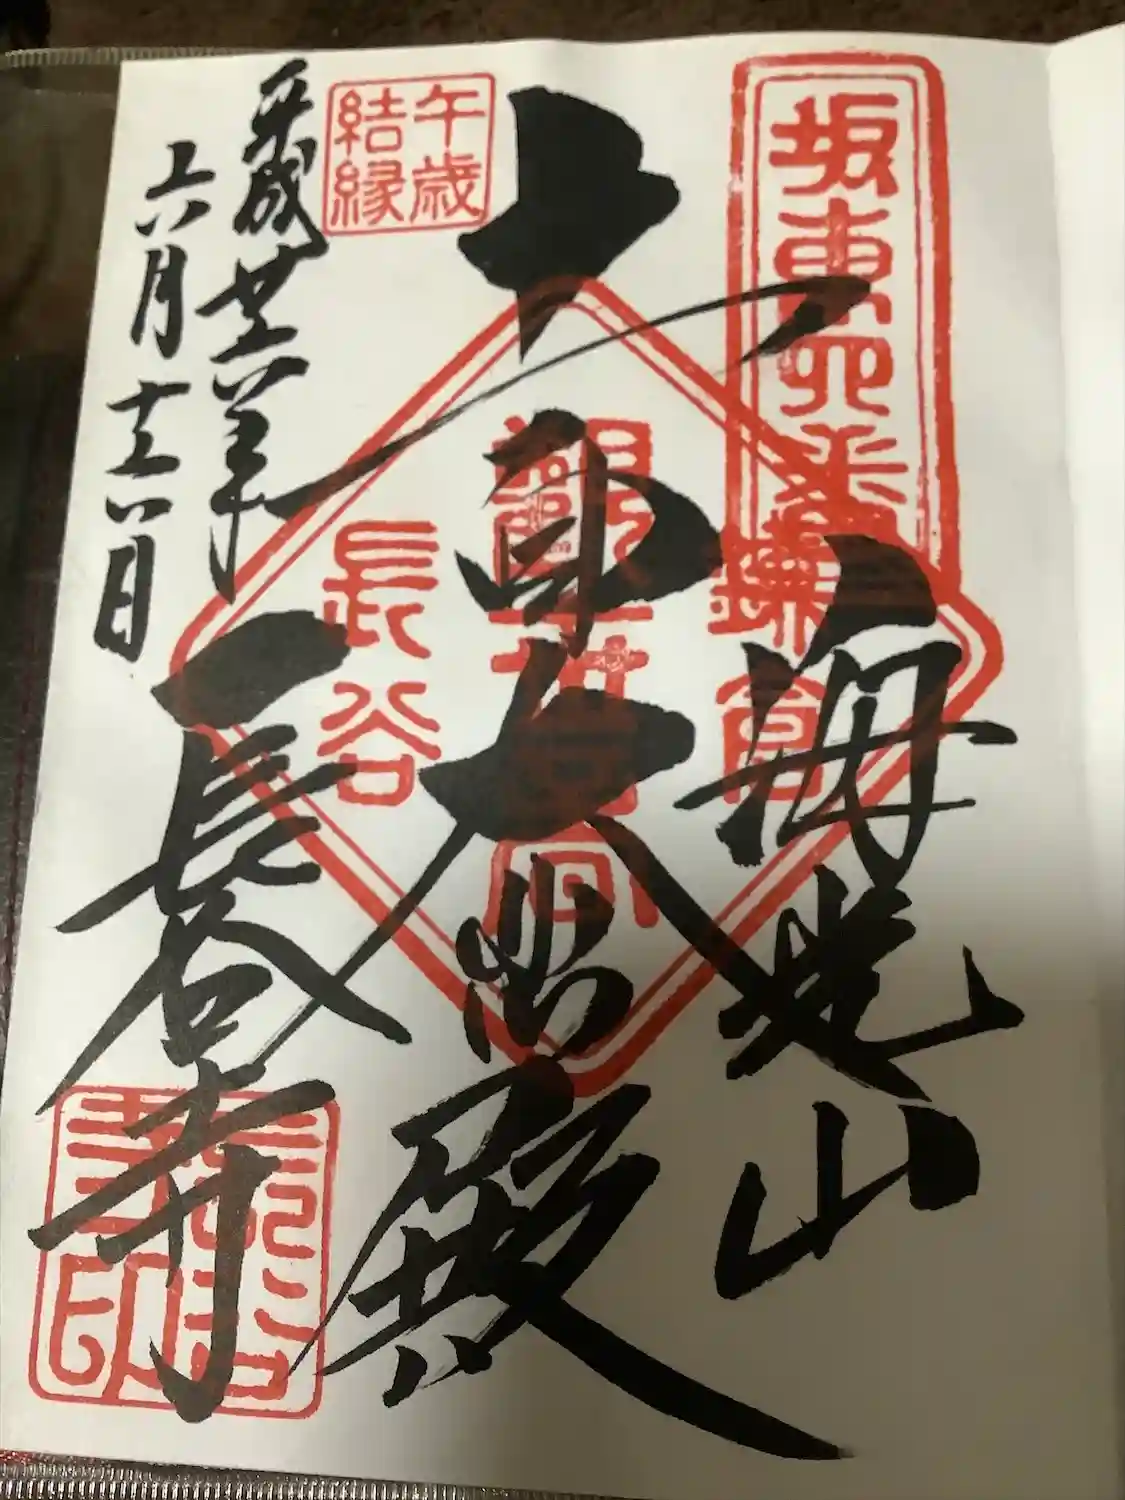 坂東四番
海光山
鎌倉
十一面大悲殿
長谷
午歳
結縁
長谷寺
平成廿六年
六月十六日
寺印